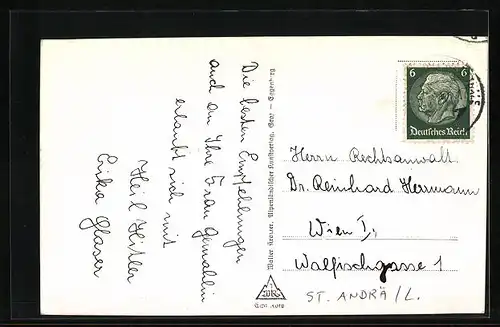 Die besten Empfehlungen
auch an Ihre Frau Gemahlin
erlaubt sich mit
Heil Hitler
Erika Glaser
Walter Kramer, Alpenländischer Kunstverlag, Graz
6 6
Deutsches Reich
Herrn Rechtsanwalt
Dr. Reinhard Herrmann
Wien I.,
Walfischgasse 1
ST. ANDRÄ/L.